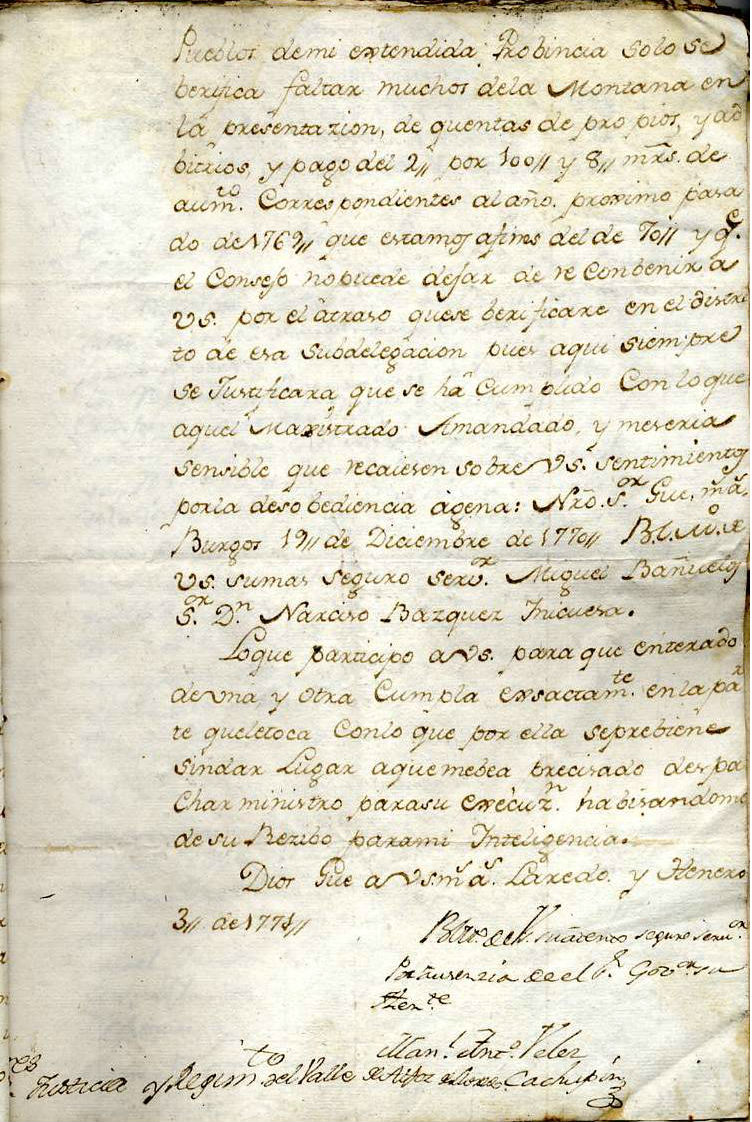 Pueblos demi extendida Probincia solo se
berifica faltar muchos dela Montana en
la presentazion, de quentas de propios, y ar
bitrios, y pago del 2,, por 100,, y 8,, mrs. de
aumto. Correspondientes al año. proximo pasa
do de 1769,, que estamos afines del de 70,, y q.e
el Consejo nopuede dejar de reConbenir a
VS. por el atraso quese berificare en el distri
to de esa Subdelegacion pues aqui siempre
se Justificara que se ha Cumplido Con loque
aquel Maxistrado Amandado, y meseria
sensible que recaiesen sobre VS. sentimientos
porla desobediencia agena: Nro. S.or Gue. m.s a.s
Burgos 19,, de Diciembre de 1770,, B.L.M.o de
VS. sumas seguro serv.or Miguel Bañuelos
S.or D.n Narciso Bazquez Inicuesa.
Loque participo aVS. para que enterado
deuna y otra Cumpla exsactam.te en la par
te queletoca Conlo que por ella seprebiene
sindar Lugar aquemebea precisado despa
char ministro parasu execuz.n habisandome
de su Rezibo parami Inteligencia.
Dios Gue a VS. m.s a.s Laredo. y Henero
3,, de 1771,,
seguro serv.or
Por ausenzia de el S.r Gov.or su
Then.te
Man.l Ant.o Velez
Justicia y Regim.to del Valle de